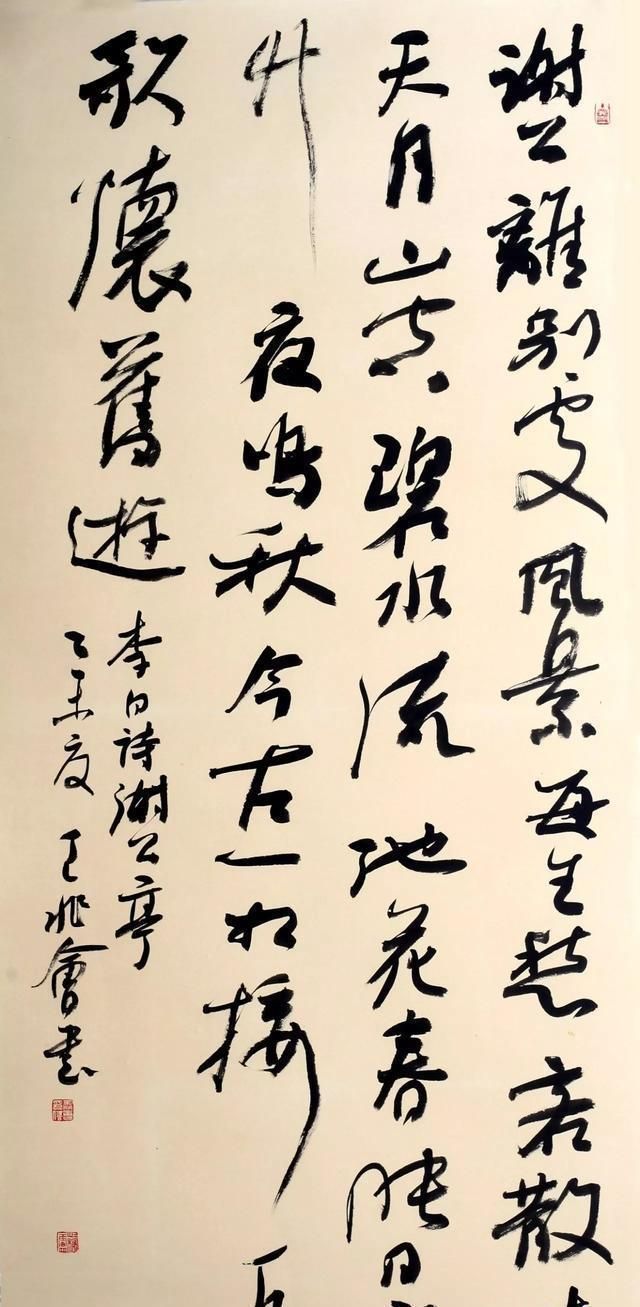 謝公離別處風景每生愁客散
天月山空碧水流池花春映日
竹夜鳴秋今古一相接
歌懷舊遊
李白詩謝公亭
乙未夏王兆會書